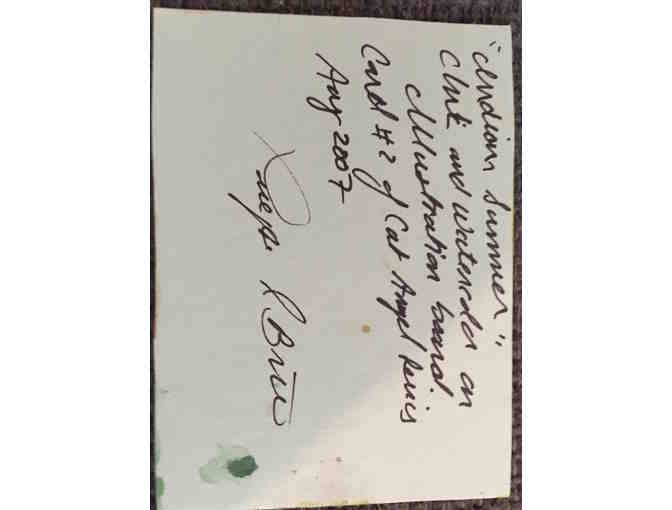 "Indian Summer"
Ink and watercolor on
illustration board
Card #2 of Cat Angel Series
Aug 2007